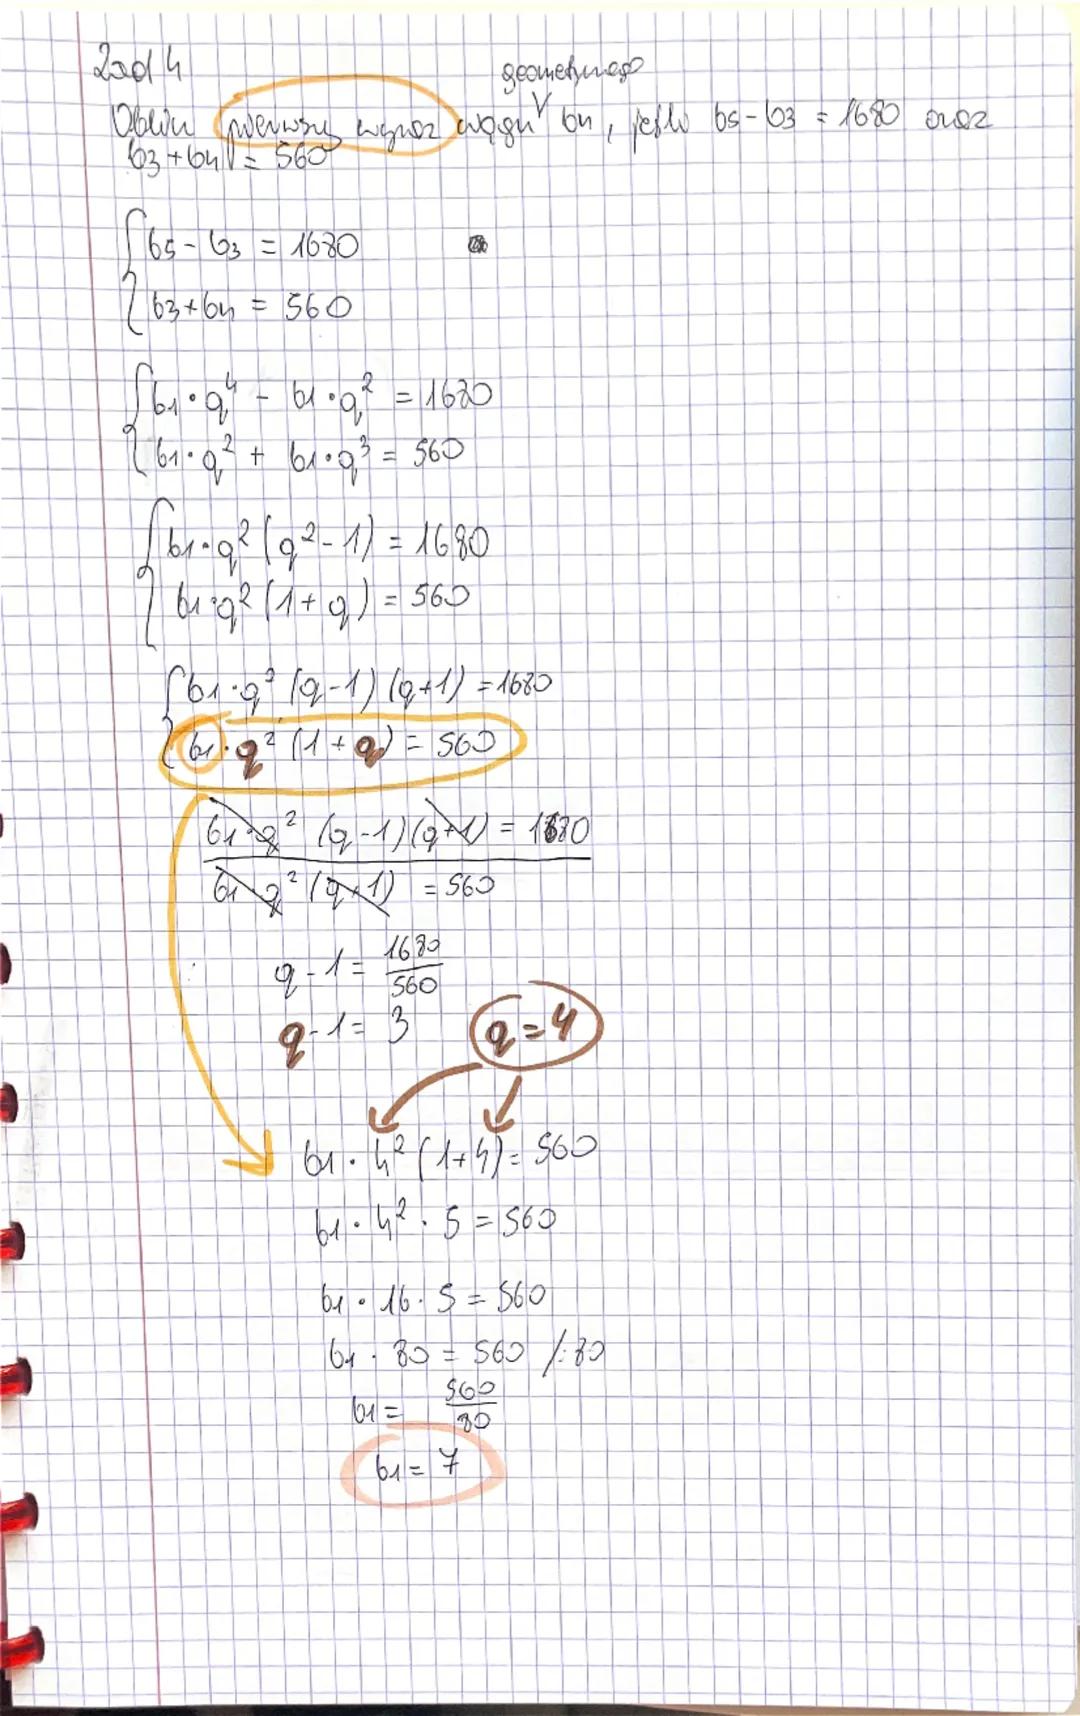 Zad 4
geometrycznego
Oblicz pierwszy wyraz ciągu bn, jeśli b5-b3 = 1680 oraz
b3+b4 = 560
b5-b3 = 1680
b3+b4 = 560
b1·q⁴ - b1·q² = 1680
b1·q² + b1·q³ = 560
b1·q²(q²-1) = 1680
b1·q²(1+q) = 560
b1·q²(q-1)(q+1) = 1680
b1·q²(1+q) = 560
b1·q²(q-1)(q+1) = 1680
b1·q²(q+1) = 560
q-1 = 1680/560
q-1 = 3 q=4
b1·4²(1+4) = 560
b1·4²·5 = 560
b1·16·5 = 560
b1·80 = 560 /:80
b1 = 560/80
b1 = 7